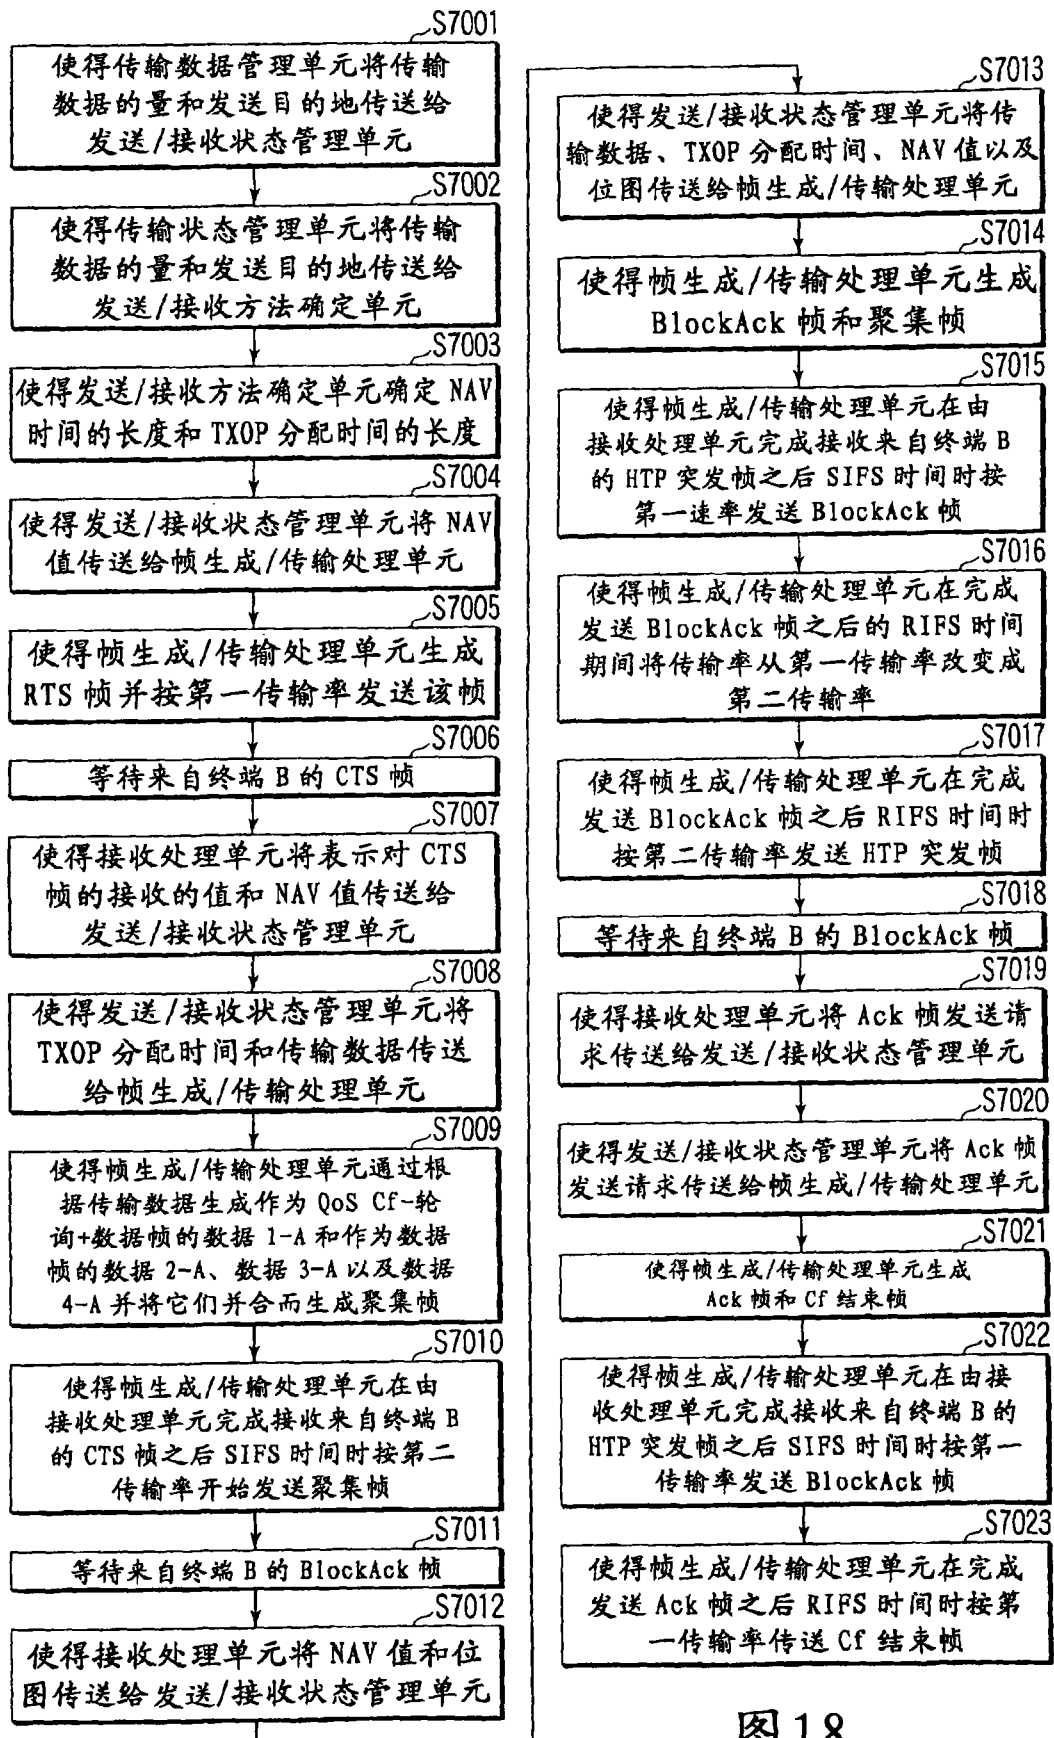 S7001
使得传输数据管理单元将传输
数据的量和发送目的地传送给
发送/接收状态管理单元
S7002
使得传输状态管理单元将传输
数据的量和发送目的地传送给
发送/接收方法确定单元
S7003
使得发送/接收方法确定单元确定 NAV
时间的长度和 TXOP 分配时间的长度
S7004
使得发送/接收状态管理单元将 NAV
值传送给帧生成/传输处理单元
S7005
使得帧生成/传输处理单元生成
RTS 帧并按第一传输率发送该帧
S7006
等待来自终端 B 的 CTS 帧
S7007
使得接收处理单元将表示对 CTS
帧的接收的值和 NAV 值传送给
发送/接收状态管理单元
S7008
使得发送/接收状态管理单元将
TXOP 分配时间和传输数据传送
给帧生成/传输处理单元
S7009
使得帧生成/传输处理单元通过根
据传输数据生成作为 QoS Cf-轮
询+数据帧的数据 1-A 和作为数据
帧的数据 2-A、数据 3-A 以及数据
4-A 并将它们并合而生成聚集帧
S7010
使得帧生成/传输处理单元在由
接收处理单元完成接收来自终端 B
的 CTS 帧之后 SIFS 时间时按第二
传输率开始发送聚集帧
S7011
等待来自终端 B 的 BlockAck 帧
S7012
使得接收处理单元将 NAV 值和位
图传送给发送/接收状态管理单元
S7013
使得发送/接收状态管理单元将传
输数据、TXOP 分配时间、NAV 值以及
位图传送给帧生成/传输处理单元
S7014
使得帧生成/传输处理单元生成
BlockAck 帧和聚集帧
S7015
使得帧生成/传输处理单元在由
接收处理单元完成接收来自终端 B
的 HTP 突发帧之后 SIFS 时间时按
第一速率发送 BlockAck 帧
S7016
使得帧生成/传输处理单元在完成
发送 BlockAck 帧之后的 RIFS 时间
期间将传输率从第一传输率改变成
第二传输率
S7017
使得帧生成/传输处理单元在完成
发送 BlockAck 帧之后 RIFS 时间时
按第二传输率发送 HTP 突发帧
S7018
等待来自终端 B 的 BlockAck 帧
S7019
使得接收处理单元将 Ack 帧发送请
求传送给发送/接收状态管理单元
S7020
使得发送/接收状态管理单元将 Ack 帧
发送请求传送给帧生成/传输处理单元
S7021
使得帧生成/传输处理单元生成
Ack 帧和 Cf 结束帧
S7022
使得帧生成/传输处理单元在由接
收处理单元完成接收来自终端 B 的
HTP 突发帧之后 SIFS 时间时按第一
传输率发送 BlockAck 帧
S7023
使得帧生成/传输处理单元在完成
发送 Ack 帧之后 RIFS 时间时按第
一传输率传送 Cf 结束帧
图 18